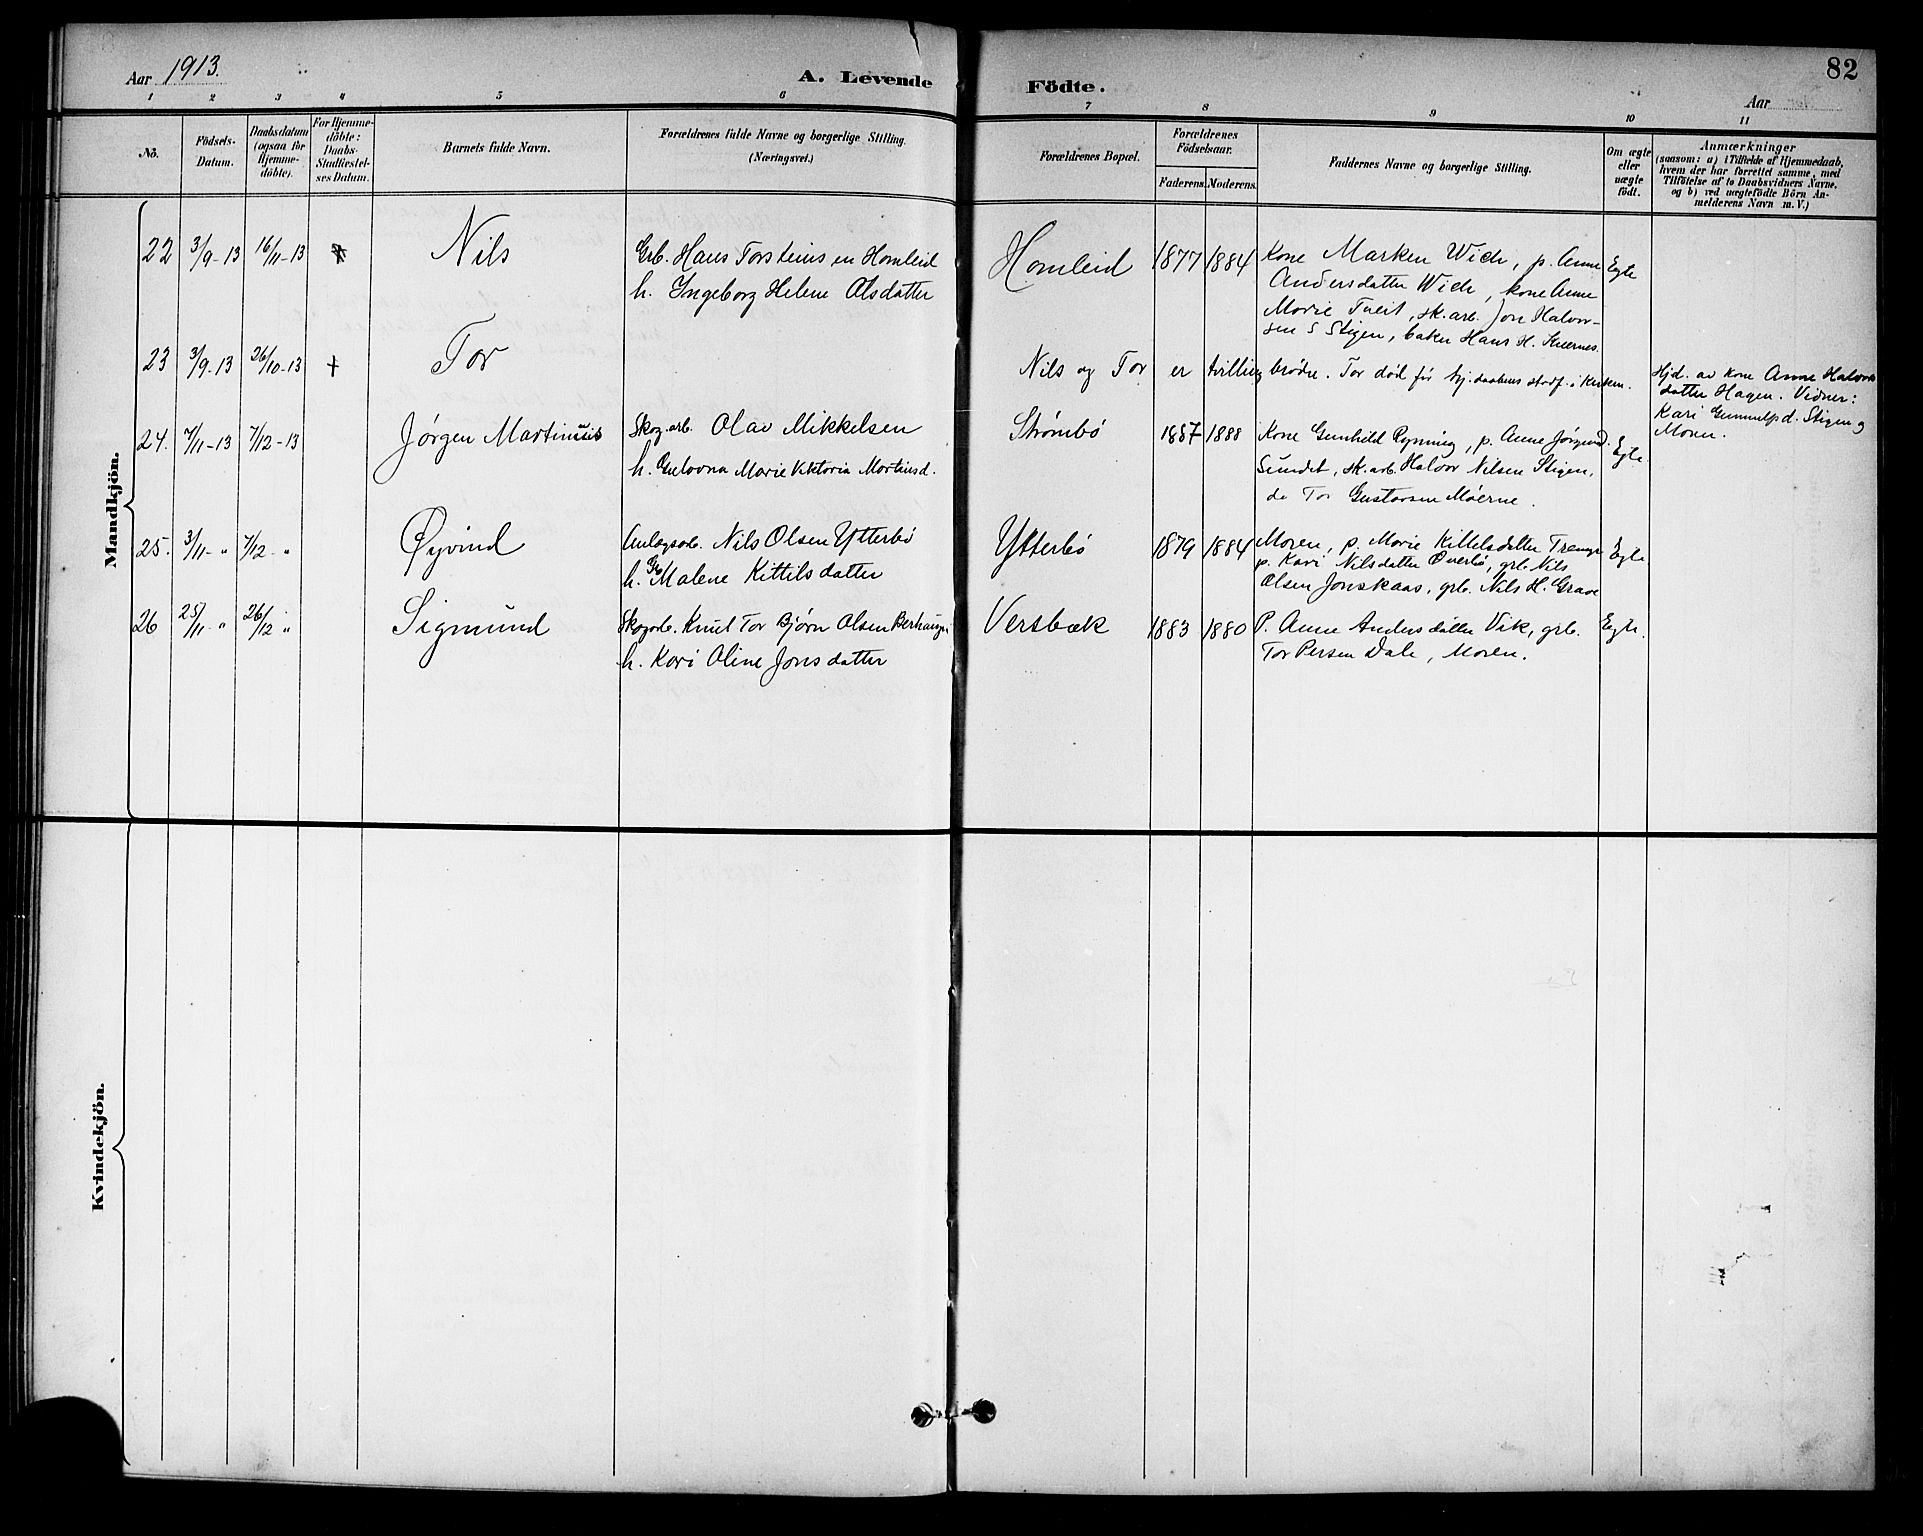 Aar 1913.
A. Levende
Födte.
82
Aar
1 2 3 4 5 6 7 8 9 10 11
Nö.
Födsels-
Datum.
Daabsdatum
(ogsaa for
Hjemme-
döbte).
For Hjemme-
döbte:
Daabs-
Stadfæstel-
ses Datum.
Barnets fulde Navn.
Forældrenes fulde Navne og borgerlige Stilling.
(Næringsvei.)
Forældrenes Bopæl.
Forældrenes
Födselsaar.
Faderens.
Moderens.
Faddernes Navne og borgerlige Stilling.
Om ægte
eller
uægte
födt.
Anmærkninger
(saasom: a) i Tilfælde af Hjemmedaab,
hvem der har forrettet samme, med
Tilföielse af to Daabsvidners Navne.
og b) ved uægtefödte Börn An-
melderens Navn m. V.)
Mandkjön.
22 3/9-13 16/11-13 Nils
Grb. Hans Torsteinsen Homleid
h. Ingeborg Helene Olsdatter
Homleid 1877 1884
Kone Marken Wich, p. Anne
Andersdatter Wich, kone Anne
Marie Tveit, sk.arb. Jon Halvor-
sen S Stigen, baker Hans H. Kvernes.
Egte
23 3/9-13 26/10-13 + Tor
Nils og Tor er tvillingbrødre. Tor død før hj.daabens stadf. i kirken.
Hjd. av kone Anne Halvors
datter Hagen. Vidner:
Kari Gunnulfsd. Stigen og
Moren.
24. 7/11-13 7/12-13 Jørgen Martinius
Skog.arb. Olav Mikkelsen
h. Gulovna Marie Viktoria Martinsd.
Strømbö 1887 1888
Kone Gunhild Rynning, p. Anne Jörgensd.
Sundet, sk.arb. Halvor Nilsen Stigen,
do Tor Gustavsen Moerne.
Egte
25. 3/11-" 7/12-" Øyvind
Anlægsarb. Nils Olsen Ytterbö
h. Malene Kittilsdatter
Ytterbö 1879 1884
Moren, p. Marie Kittelsdatter
p. Kari Nilsdatter Överbö, grb. Nils
Olsen Jonskaas, grb. Nils H. Grave
Egte
26 25/11-" 26/12-" Sigmund
Skogarb. Knut Tor Bjørn Olsen Berhaugen
h. Kari Oline Jonsdatter
Versbæk 1883 1880
P. Anne Andersdatter Vik, grb.
Tor Persen Dale, Moren.
Egte.
Kvindekjön.